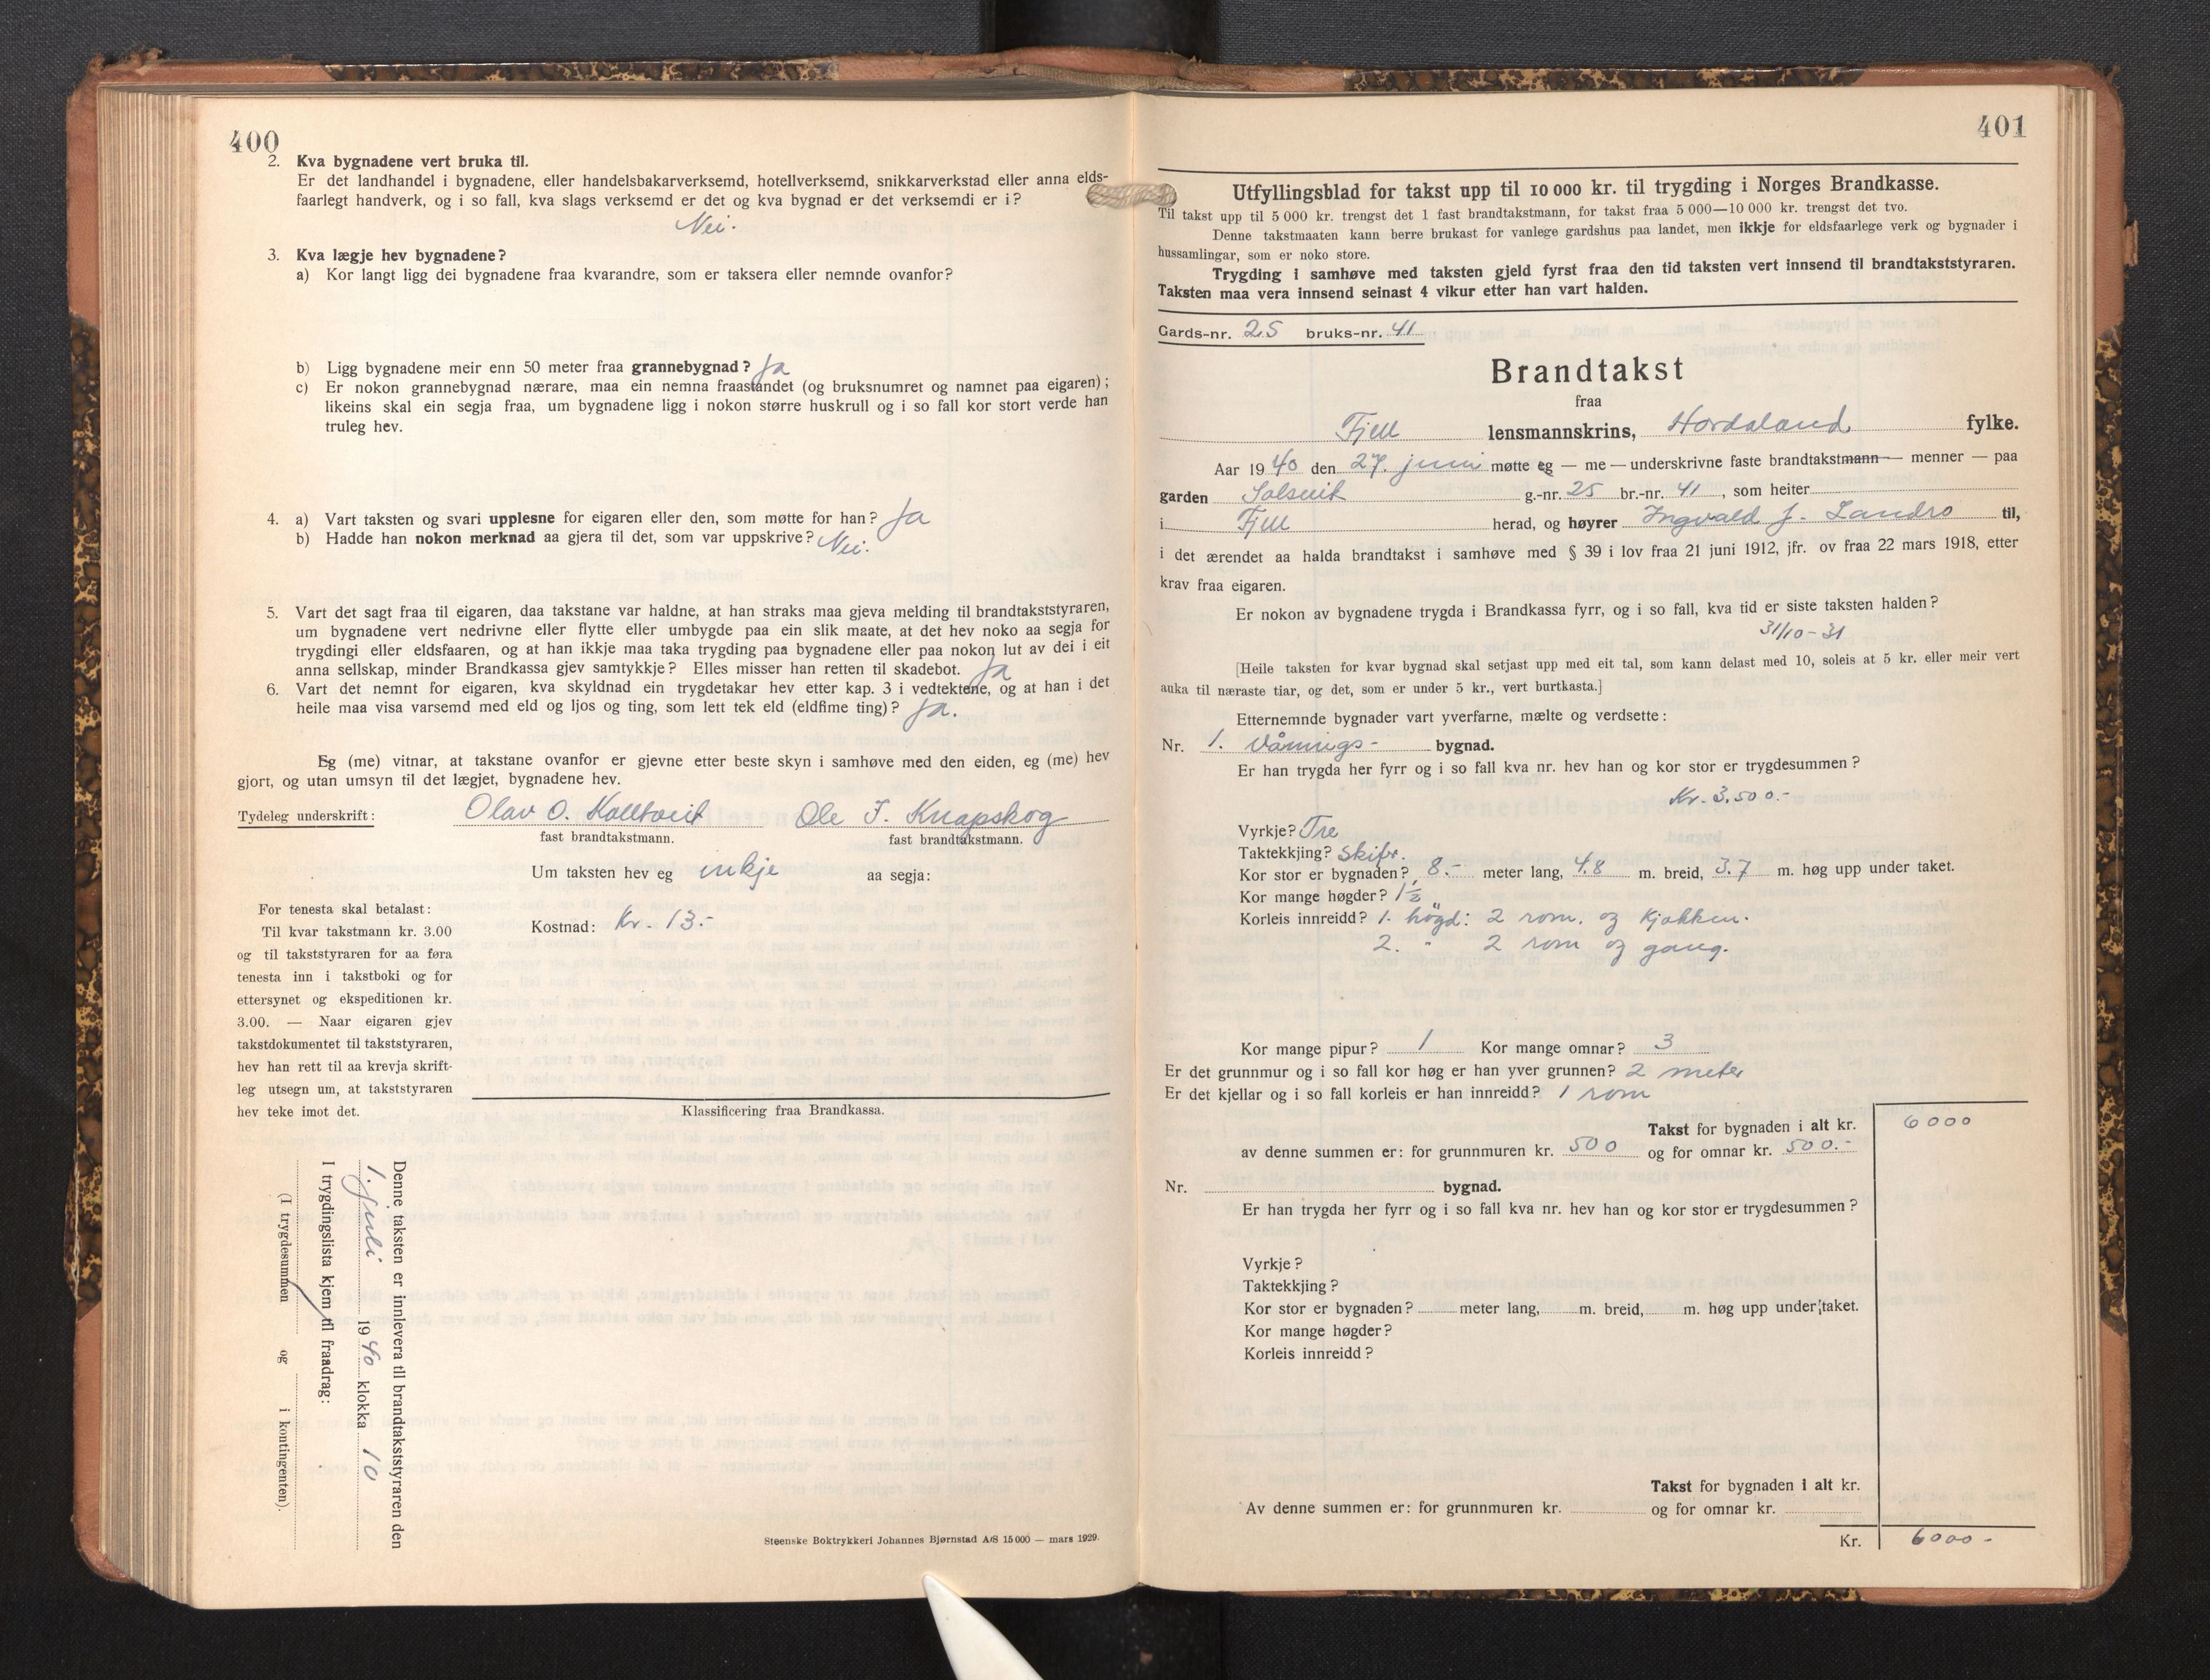 400
2. Kva bygnadene vert bruka til.
Er det landhandel i bygnadene, eller handelsbakarverksemd, hotellverksemd, snikkarverkstad eller anna elds-
faarlegt handverk, og i so fall, kva slags verksemd er det og kva bygnad er det verksemdi er i?
Nei.
3. Kva lægje hev bygnadene?
a) Kor langt ligg dei bygnadene fraa kvarandre, som er taksera eller nemnde ovanfor?
b) Ligg bygnadene meir enn 50 meter fraa grannebygnad? Ja
c) Er nokon grannebygnad nærare, maa ein nemna fraastandet (og bruksnumret og namnet paa eigaren);
likeins skal ein segja fraa, um bygnadene ligg i nokon større huskrull og i so fall kor stort verde han
truleg hev.
4. a) Vart taksten og svari upplesne for eigaren eller den, som møtte for han? Ja
b) Hadde han nokon merknad aa gjera til det, som var uppskrive? Nei.
5. Vart det sagt fraa til eigaren, daa takstane var haldne, at han straks maa gjeva melding til brandtakststyraren,
um bygnadene vert nedrivne eller flytte eller umbygde paa ein slik maate, at det hev noko aa segja for
trygdingi eller eldsfaaren, og at han ikkje maa taka trygding paa bygnadene eller paa nokon lut av dei i eit
anna sellskap, minder Brandkassa gjev samtykkje? Elles misser han retten til skadebot. Ja
6. Vart det nemnt for eigaren, kva skyldnad ein trygdetakar hev etter kap. 3 i vedtektene, og at han i det
heile maa visa varsemd med eld og ljos og ting, som lett tek eld (eldfime ting)? Ja.
Eg (me) vitnar, at takstane ovanfor er gjevne etter beste skyn i samhøve med den eiden, eg (me) hev
gjort, og utan umsyn til det lægjet, bygnadene hev.
Tydeleg underskrift: Olav O. Kolltveit Ole J. Knapskog
fast brandtakstmann. fast brandtakstmann.
Um taksten hev eg inkje aa segja:
Kostnad: Kr. 13.-
For tenesta skal betalast:
Til kvar takstmann kr. 3.00
og til takststyraren for aa føra
tenesta inn i takstboki og for
ettersynet og ekspeditionen kr.
3.00. — Naar eigaren gjev
takstdokumentet til takststyraren,
hev han rett til aa krevja skrift-
leg utsegn um, at takststyraren
hev teke imot det.
Klassificering fraa Brandkassa.
Denne taksten er innlevera til brandtakststyraren den
1. juli 1940 klokka 10
I trygdingslista kjem til fraadrag:
(I trygdesummen og i kontingenten).
Steenske Boktrykkeri Johannes Bjørnstad A/S 15 000 — mars 1929.
401
Utfyllingsblad for takst upp til 10 000 kr. til trygding i Norges Brandkasse.
Til takst upp til 5 000 kr. trengst det 1 fast brandtakstmann, for takst fraa 5 000—10 000 kr. trengst det tvo.
Denne takstmaaten kann berre brukast for vanlege gardshus paa landet, men ikkje for eldsfaarlege verk og bygnader i
hussamlingar, som er noko store.
Trygding i samhøve med taksten gjeld fyrst fraa den tid taksten vert innsend til brandtakststyraren.
Taksten maa vera innsend seinast 4 vikur etter han vart halden.
Gards-nr. 25 bruks-nr. 41
Brandtakst
fraa
Fjell lensmannskrins, Hordaland fylke.
Aar 1940 den 27. juni møtte eg — me — underskrivne faste brandtakstmann — menner — paa
garden Solsvik g.-nr. 25 br.-nr. 41, som heiter
i Fjell herad, og høyrer Ingvald J. Landro til,
i det ærendet aa halda brandtakst i samhøve med § 39 i lov fraa 21 juni 1912, jfr. ov fraa 22 mars 1918, etter
krav fraa eigaren.
Er nokon av bygnadene trygda i Brandkassa fyrr, og i so fall, kva tid er siste taksten halden?
31/10-31
[Heile taksten for kvar bygnad skal setjast upp med eit tal, som kann delast med 10, soleis at 5 kr. eller meir vert
auka til næraste tiar, og det, som er under 5 kr., vert burtkasta.]
Etternemnde bygnader vart yverfarne, mælte og verdsette:
Nr. 1. Vånings- bygnad.
Er han trygda her fyrr og i so fall kva nr. hev han og kor stor er trygdesummen?
Kr. 3.500.-
Vyrkje? Tre
Taktekkjing? Skifr.
Kor stor er bygnaden? 8.- meter lang, 4.8 m. breid, 3.7 m. høg upp under taket.
Kor mange høgder? 1½
Korleis innreidd? 1. högd: 2 rom. og kjökken.
2. " 2 rom og gang.
Kor mange pipur? 1 Kor mange omnar? 3
Er det grunnmur og i so fall kor høg er han yver grunnen? 2 meter
Er det kjellar og i so fall korleis er han innreidd? 1 rom
Takst for bygnaden i alt kr. 6000
av denne summen er: for grunnmuren kr. 500 og for omnar kr. 500.-
Nr. bygnad.
Er han trygda her fyrr og i so fall kva nr. hev han og kor stor er trygdesummen?
Vyrkje?
Taktekkjing?
Kor stor er bygnaden? meter lang, m. breid, m. høg upp under taket.
Kor mange høgder?
Korleis innreidd?
Takst for bygnaden i alt kr.
Av denne summen er: for grunnmuren kr. og for omnar kr.
Kr. 6000-